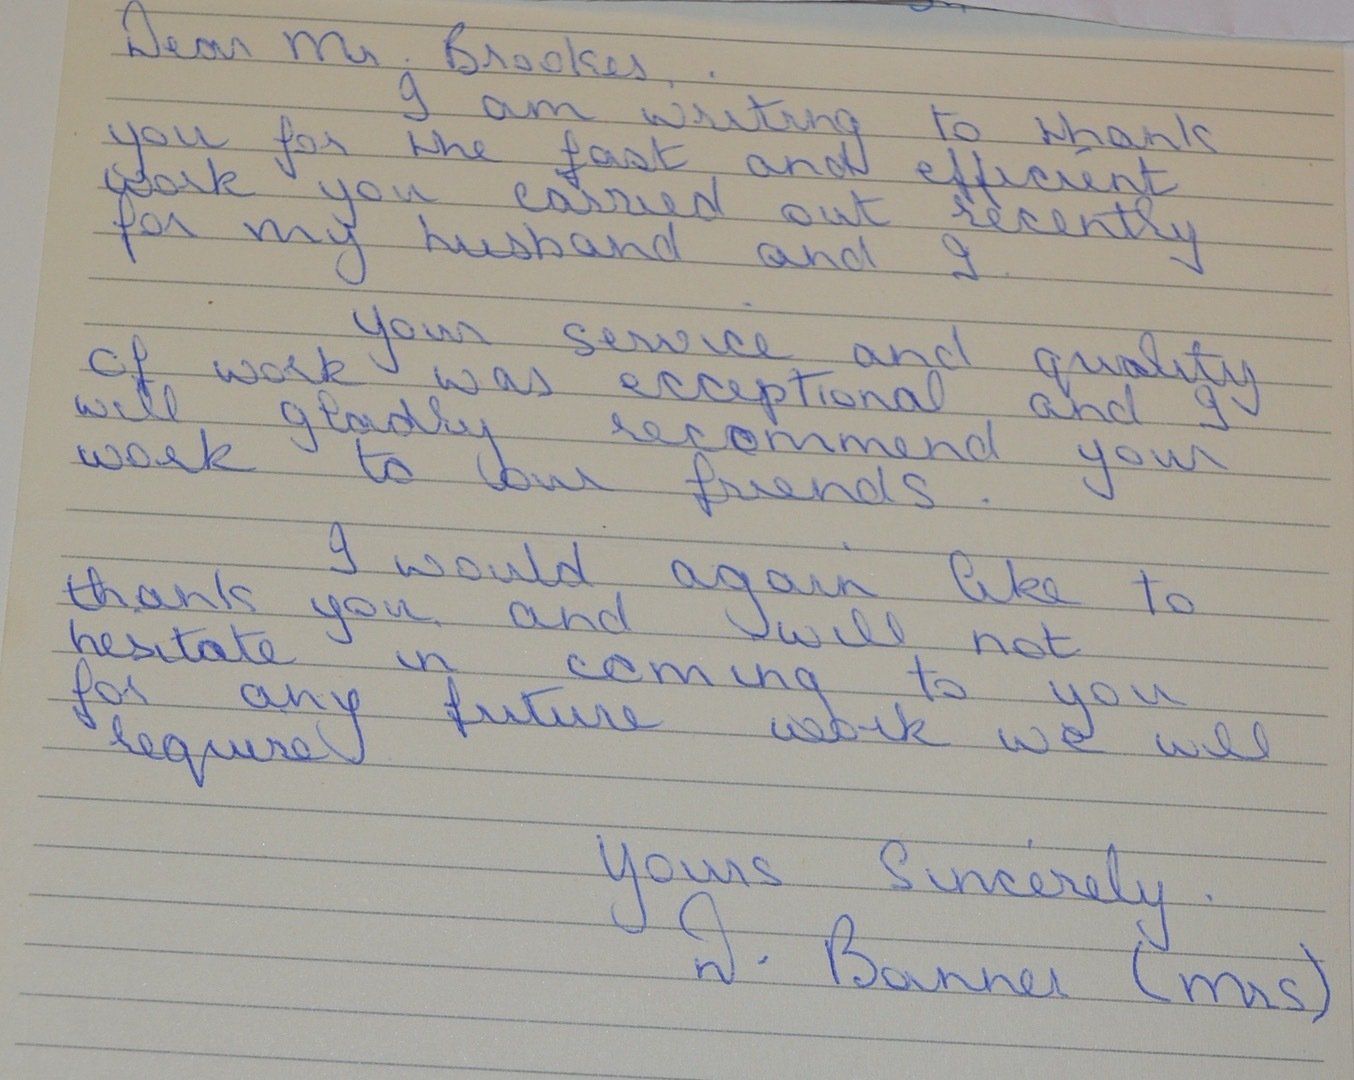 Dear Mr. Brookes,.
I am writing to thank
you for the fast and efficient
work you carried out recently
for my husband and I.
Your service and quality
of work was exceptional and I
will gladly recommend your
work to our friends.
I would again like to
thank you and will not
hesitate in coming to you
for any future work we will
require
Yours Sincerely.
Banner (Mrs)